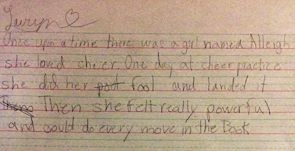 Once upon a time there was a girl named Alleigh
she loved cheer. One day at cheer practice
she did her fool and landed it
Then she felt really powerful
and could do every move in the Book